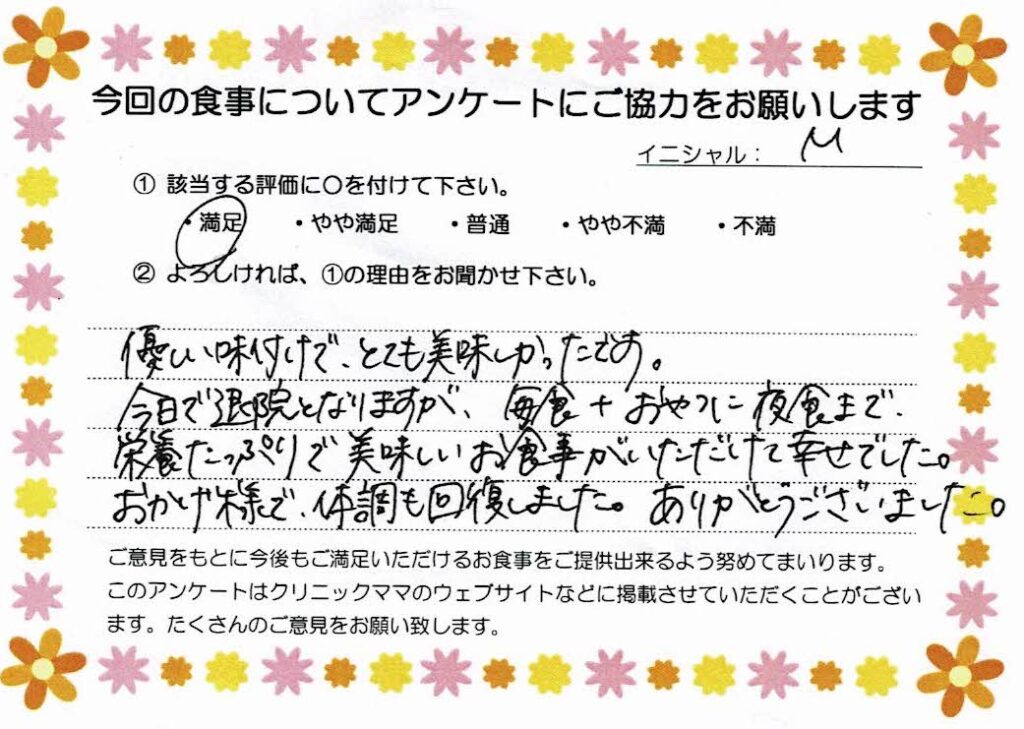 今回の食事についてアンケートにご協力をお願いします
イニシャル： M
① 該当する評価に〇を付けて下さい。
・満足 ・やや満足 ・普通 ・やや不満 ・不満
② よろしければ、①の理由をお聞かせ下さい。
優しい味付けで、とても美味しかったです。
今日で退院となりますが、毎食＋おやつに夜食まで、
栄養たっぷりで美味しいお食事がいただけて幸せでした。
おかげ様で、体調も回復しました。ありがとうございました。
ご意見をもとに今後もご満足いただけるお食事をご提供出来るよう努めてまいります。
このアンケートはクリニックママのウェブサイトなどに掲載させていただくことがござい
ます。たくさんのご意見をお願い致します。